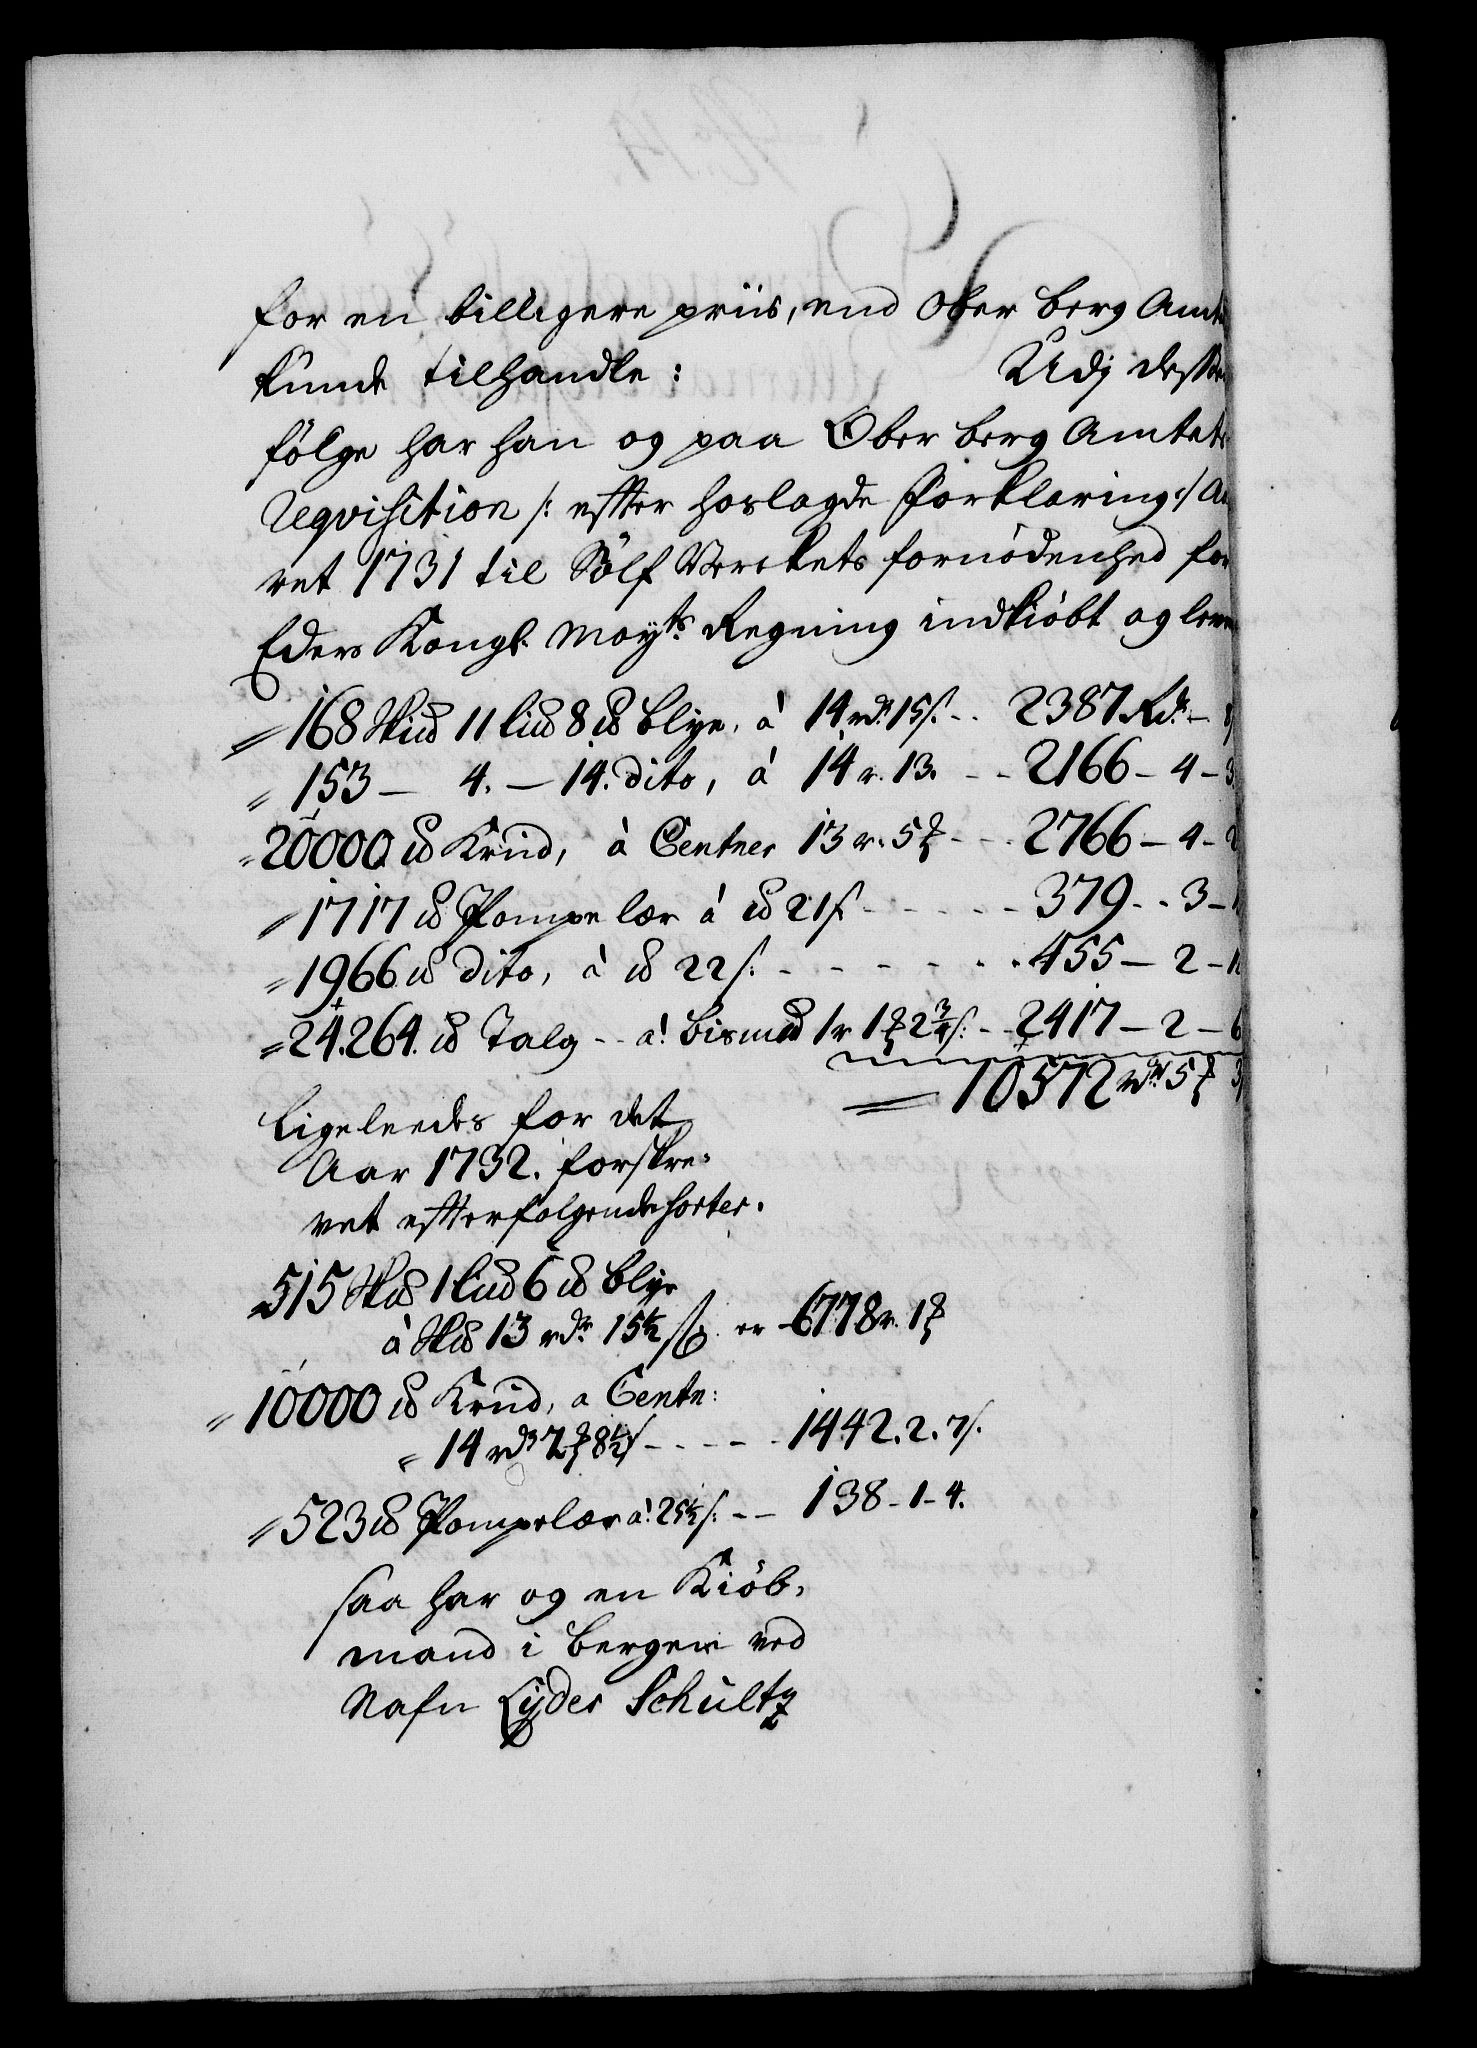 for en billigere priis, end Ober Berg Amt
kunde tilhandle: Udj desse
fölge har han og paa Ober Berg Amtets
Reqvisition /: efter hoslagde Forklaring :/ A
ret 1731 til Sölf Werckets fornödenhed for
Eders Kongl. Mayts. Regning indkiöbt og leve
168 Sk℔ 11 Li℔ 8 ℔ Blye, à 14 rdr. 15 s. -- 2387 Rdr. -
153 - 4. - 14. dito, à 14 r. 13. -- 2166 - 4 - 3
20000 ℔ Krud, à Centner 13 r. 5 ꝑ -- 2766 - 4 - 2
1717 ℔ Pompe lær à ℔ 21 s. - - - - 379 - - 3 - 1
1966 ℔ dito, à ℔ 22 s. - - - - - - 455 - 2 - 1
24.264. ℔ Talg -- a! Bismed 1 r 1 ꝑ 2 3/4 s. -- 2417 - 2 - 6
10572 rdr. 5 ꝑ 3
Ligeleedes for det
Aar 1732. forskre-
vet efterfölgende Sorter.
515 Sk℔ 1 Li℔ 6 ℔ Blye
à Sk℔ 13 rdr. 15 1/2 s. er 6778 r. 1 ꝑ
10000 ℔ Krud, a Centn:
14 rdr 2 ꝑ 8 1/2 s - - - - 1442. 2. 7 s.
523 ℔ Pompelær a! 25 1/2 s. -- 138 - 1 - 4.
saa har og en Kiöb-
mand i Bergen ved
Nafn Lyder Schultz